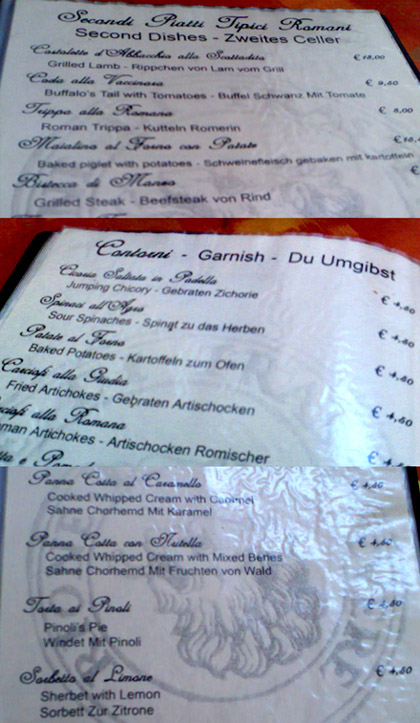 Secondi Piatti Tipici Romani
Second Dishes - Zweites Celler
Costolette d'Abbacchio alla Scottadita € 18,00
Grilled Lamb - Rippchen von Lam vom Grill
Coda alla Vaccinara € 9,50
Buffalo's Tail with Tomatoes - Buffel Schwanz Mit Tomate
Trippa alla Romana € 8,00
Roman Trippa - Kutteln Romerin
Maialino al Forno con Patate
Baked piglet with potatoes - Schweinefleisch gebaken mit kartoffeln
Bistecca di Manzo €
Grilled Steak - Beefsteak von Rind
Contorni - Garnish - Du Umgibst
Cicoria Saltata in Padella € 4,50
Jumping Chicory - Gebraten Zichorie
Spinaci all'Agro € 4,50
Sour Spinaches - Spinat zu das Herben
Patate al Forno € 4,50
Baked Potatoes - Kartoffeln zum Ofen
Carciofi alla Giudia € 4,50
Fried Artichokes - Gebraten Artischocken
Carciofi alla Romana €
Roman Artichokes - Artischocken Romischer
Panna Cotta al Caramello € 4,50
Cooked Whipped Cream with
Sahne Chorhemd Mit Karamel
Panna Cotta con Nutella € 4,50
Cooked Whipped Cream with Mixed Beries
Sahne Chorhemd Mit Fruchten von Wald
Torta ai Pinoli € 4,50
Pinoli's Pie
Windet Mit Pinoli
Sorbetto al Limone € 4,50
Sherbet with Lemon
Sorbett Zur Zitrone